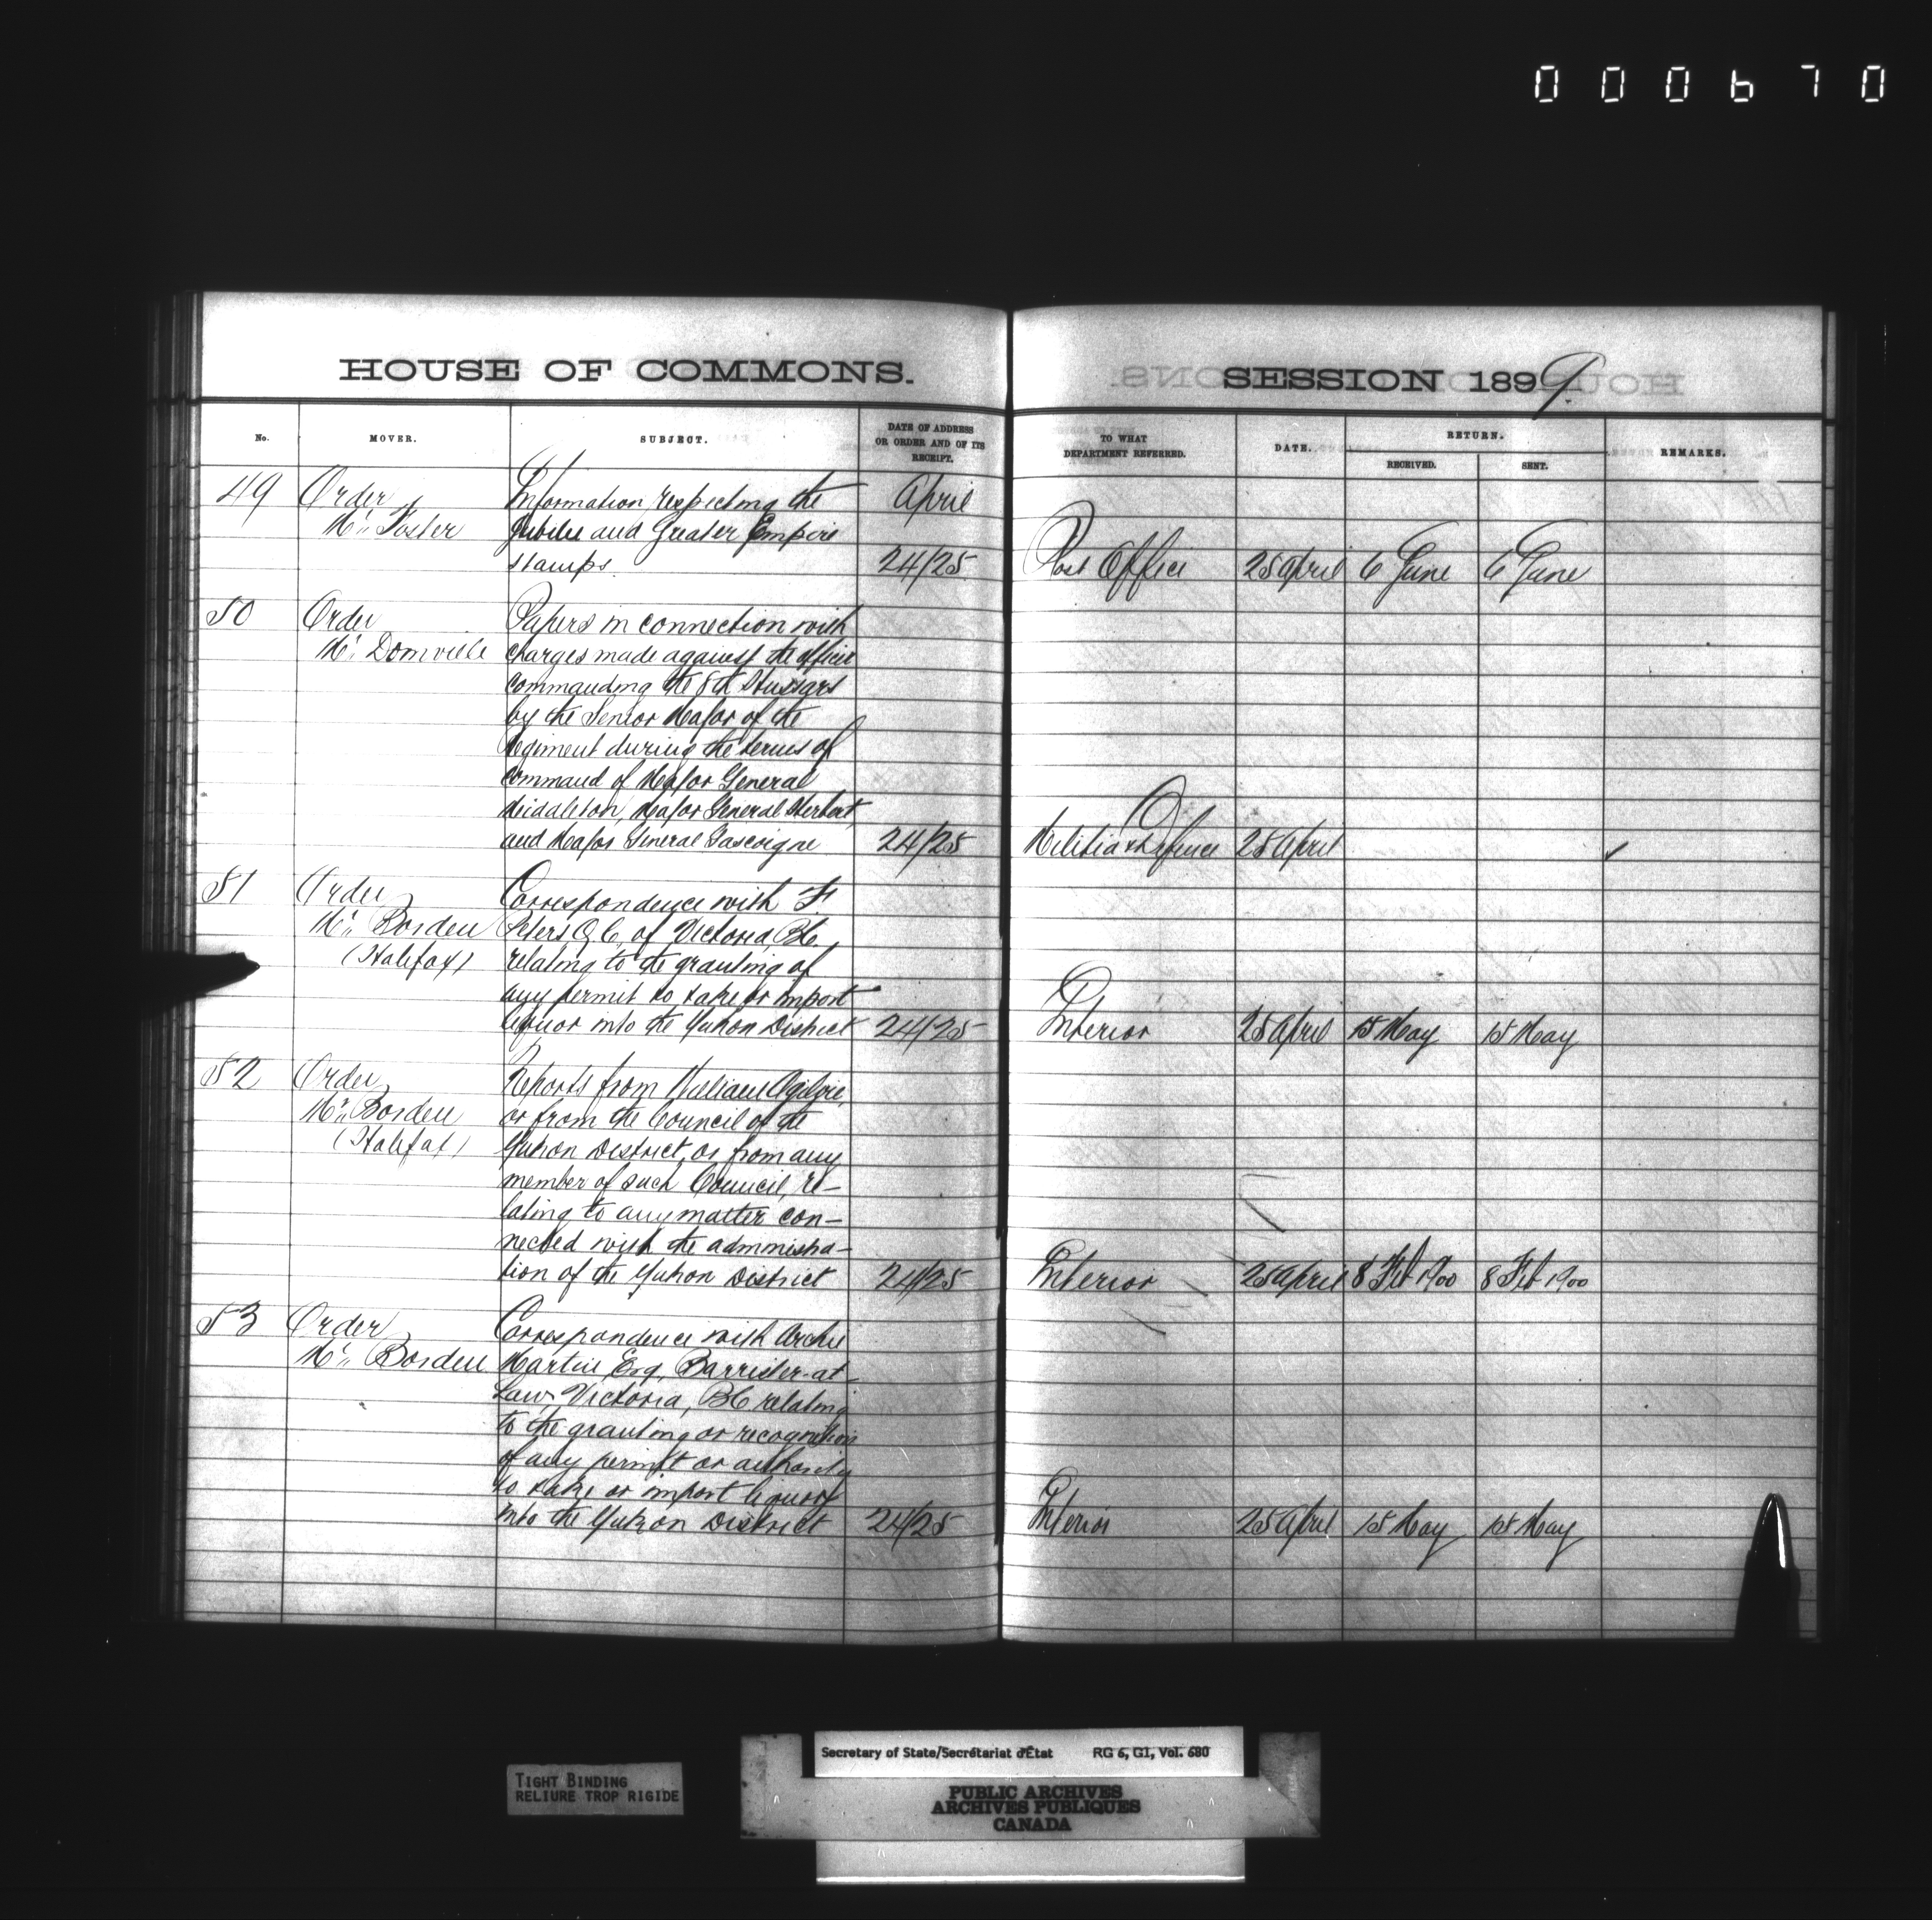 000670
HOUSE OF COMMONS.
No.
MOVER.
SUBJECT.
DATE OF ADDRESS
OR ORDER AND OF ITS
RECEIPT.
49 Order Information respecting the April
Mr. Foster Jubilee and Greater Empire
stamps. 24/25
50 Order Papers in connection with
Mr. Domville charges made against the officer
commanding the 8th Hussars
by the Senior Major of the
Regiment during the terms of
command of Major General
Middleton, Major General Herbert,
and Major General Gascoigne 24/25
51 Order Correspondence with F.
Mr. Borden Peters Q.C. of Victoria, B.C.,
(Halifax) relating to the granting of
any permit to take or import
liquor into the Yukon District 24/25
52 Order Reports from William Ogilvie,
Mr. Borden or from the Council of the
(Halifax) Yukon District, or from any
member of such Council, re-
lating to any matter con-
nected with the administra-
tion of the Yukon District 24/25
53 Order Correspondence with Archie
Mr. Borden Martin, Esq, Barrister-at-
Law, Victoria, B.C. relating
to the granting or recognition
of any permit or authority
to take or import liquor
into the Yukon District 24/25
SESSION 1899.
TO WHAT
DEPARTMENT REFERRED.
DATE.
RETURN.
RECEIVED.
SENT.
REMARKS.
Post Office 25 April 6 June 6 June
Militia & Defence 25 April ✓
Interior 25 April 15 May 15 May
Interior 25 April 8 Feb 1900 8 Feb 1900
Interior 25 April 15 May 15 May
TIGHT BINDING
RELIURE TROP RIGIDE
Secretary of State/Secrétariat d'État RG 6, G1, Vol. 680
PUBLIC ARCHIVES
ARCHIVES PUBLIQUES
CANADA